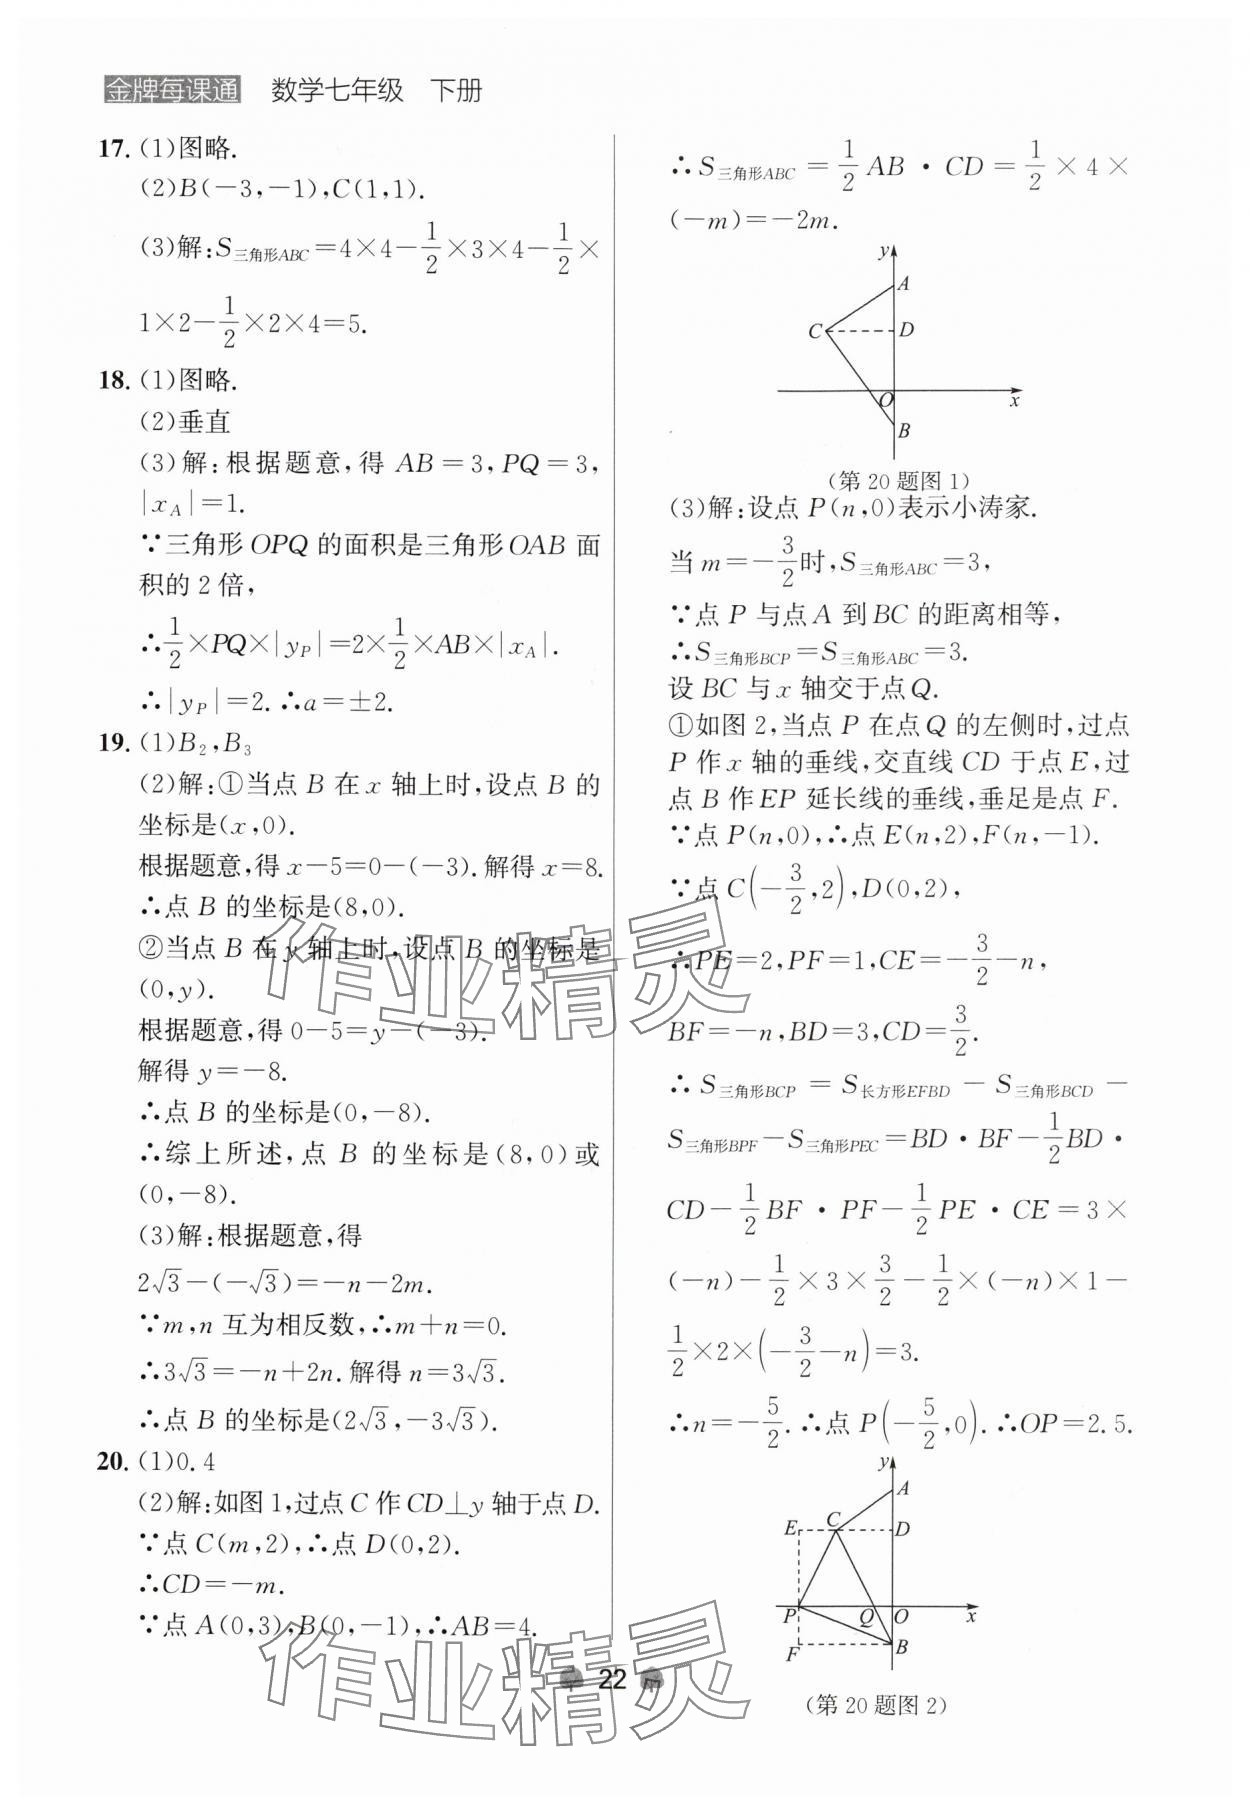 金牌每课通 数学七年级 下册
17. (1)图略.
(2)B(-3,-1),C(1,1).
(3)解:S三角形ABC=4×4-1/2×3×4-1/2×
1×2-1/2×2×4=5.
18. (1)图略.
(2)垂直
(3)解:根据题意,得 AB=3,PQ=3,
|x_A|=1.
∵三角形OPQ 的面积是三角形OAB 面
积的 2 倍,
∴1/2×PQ×|y_P|=2×1/2×AB×|x_A|.
∴|y_P|=2.∴a=±2.
19. (1)B₂,B₃
(2)解:①当点 B 在 x 轴上时,设点 B 的
坐标是(x,0).
根据题意,得 x-5=0-(-3).解得 x=8.
∴点 B 的坐标是(8,0).
②当点 B 在 y 轴上时,设点 B 的坐标是
(0,y).
根据题意,得 0-5=y-(-3).
解得 y=-8.
∴点 B 的坐标是(0,-8).
∴综上所述,点 B 的坐标是(8,0)或
(0,-8).
(3)解:根据题意,得
2√3-(-√3)=-n-2m.
∵m,n 互为相反数,∴m+n=0.
∴3√3=-n+2n.解得 n=3√3.
∴点 B 的坐标是(2√3,-3√3).
20. (1)0.4
(2)解:如图 1,过点 C 作 CD⊥y 轴于点 D.
∵点 C(m,2),∴点 D(0,2).
∴CD=-m.
∵点 A(0,3),B(0,-1),∴AB=4.
∴S三角形ABC=1/2 AB·CD=1/2×4×
(-m)=-2m.
y
A
C
D
O
x
B
(第 20 题图 1)
(3)解:设点 P(n,0)表示小涛家.
当 m=-3/2时,S三角形ABC=3,
∵点 P 与点 A 到 BC 的距离相等,
∴S三角形BCP=S三角形ABC=3.
设 BC 与 x 轴交于点 Q.
①如图 2,当点 P 在点 Q 的左侧时,过点
P 作 x 轴的垂线,交直线 CD 于点 E,过
点 B 作 EP 延长线的垂线,垂足是点 F.
∵点 P(n,0),∴点 E(n,2),F(n,-1).
∵点 C(-3/2,2),D(0,2),
∴PE=2,PF=1,CE=-3/2-n,
BF=-n,BD=3,CD=3/2.
∴S三角形BCP=S长方形EFBD-S三角形BCD-
S三角形BPF-S三角形PEC=BD·BF-1/2BD·
CD-1/2BF·PF-1/2PE·CE=3×
(-n)-1/2×3×3/2-1/2×(-n)×1-
1/2×2×(-3/2-n)=3.
∴n=-5/2.∴点 P(-5/2,0).∴OP=2.5.
y
A
E
C
D
P
Q
O
x
F
B
(第 20 题图 2)
作业精灵
作业精灵
22